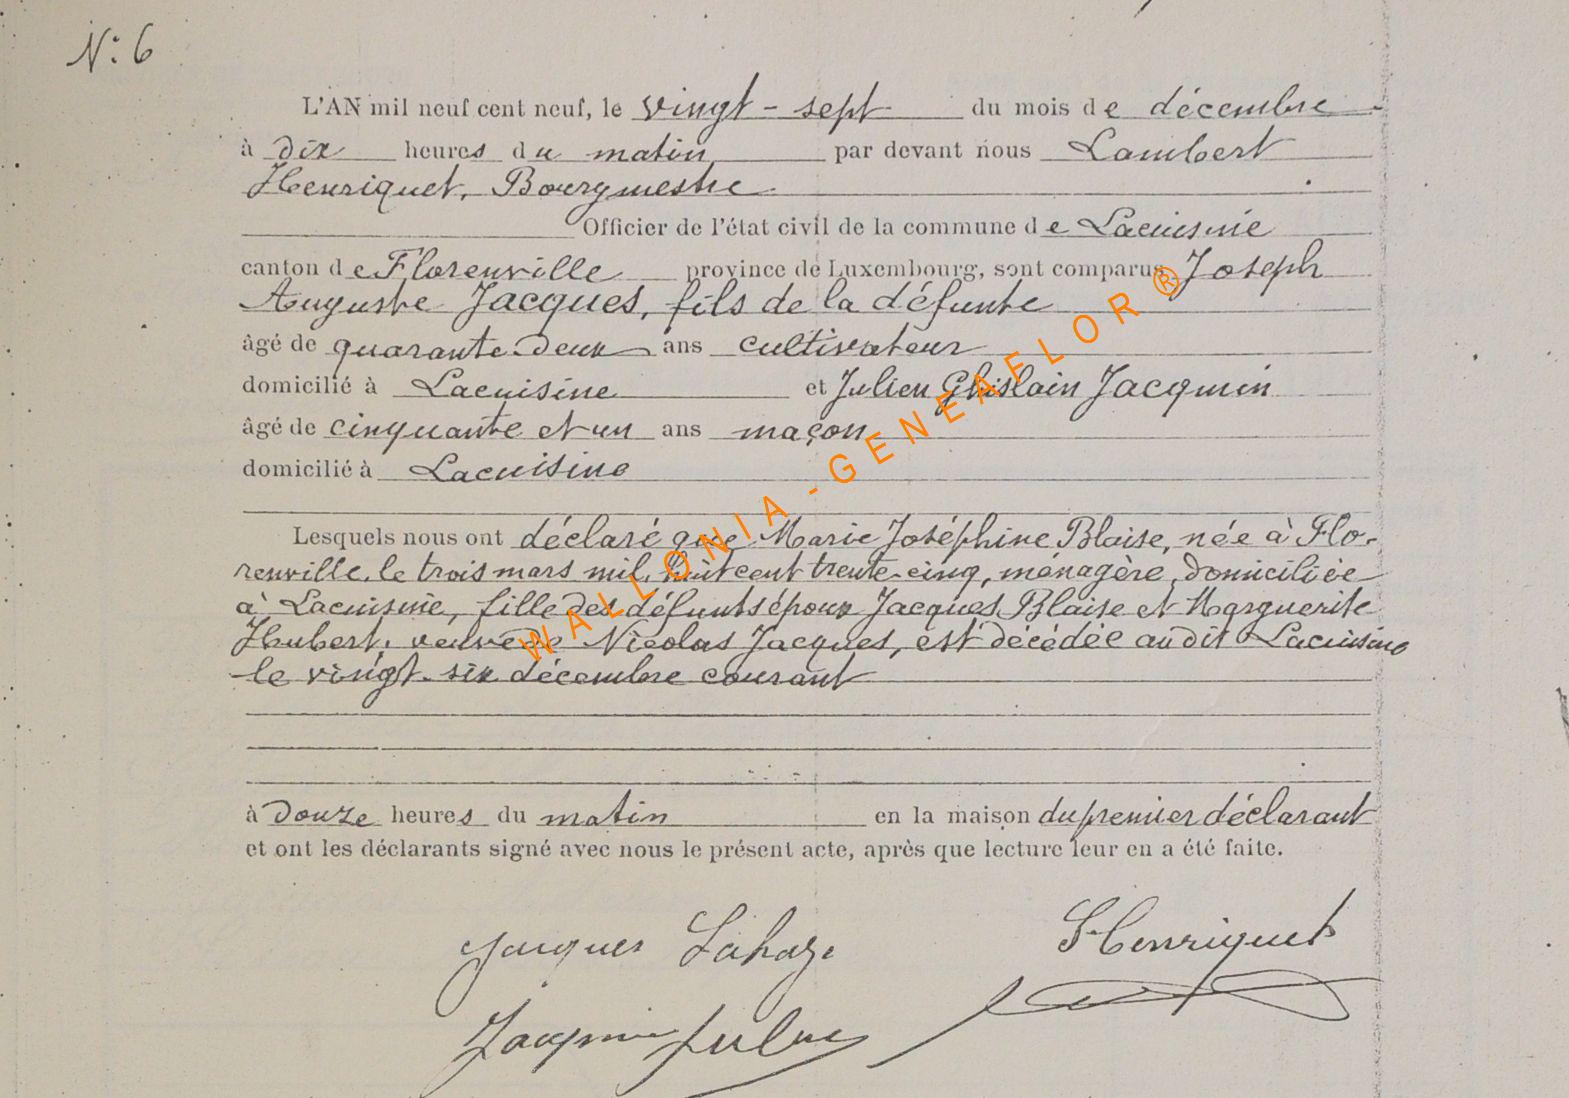 N: 6
L'AN mil neuf cent neuf, le vingt-sept du mois de décembre
à dix heures du matin par devant nous Lambert
Henriquet, Bourgmestre
Officier de l'état civil de la commune de Lacuisine
canton de Florenville province de Luxembourg, sont comparus Joseph
Auguste Jacques, fils de la défunte
âgé de quarante-deux ans cultivateur
domicilié à Lacuisine et Julien Ghislain Jacqmin
âgé de cinquante et un ans maçon
domicilié à Lacuisine
Lesquels nous ont déclaré que Marie Joséphine Blaise, née à Flo-
renville, le trois mars mil huit cent trente-cinq, ménagère, domiciliée
à Lacuisine, fille des défunts époux Jacques Blaise et Marguerite
Hubert, veuve de Nicolas Jacques, est décédée au dit Lacuisine
le vingt-six décembre courant
à douze heures du matin en la maison du premier déclarant
et ont les déclarants signé avec nous le présent acte, après que lecture leur en a été faite.
Jacques Henriquet
Jacqmin Julien
WALLONIA-GENEAFLOR®